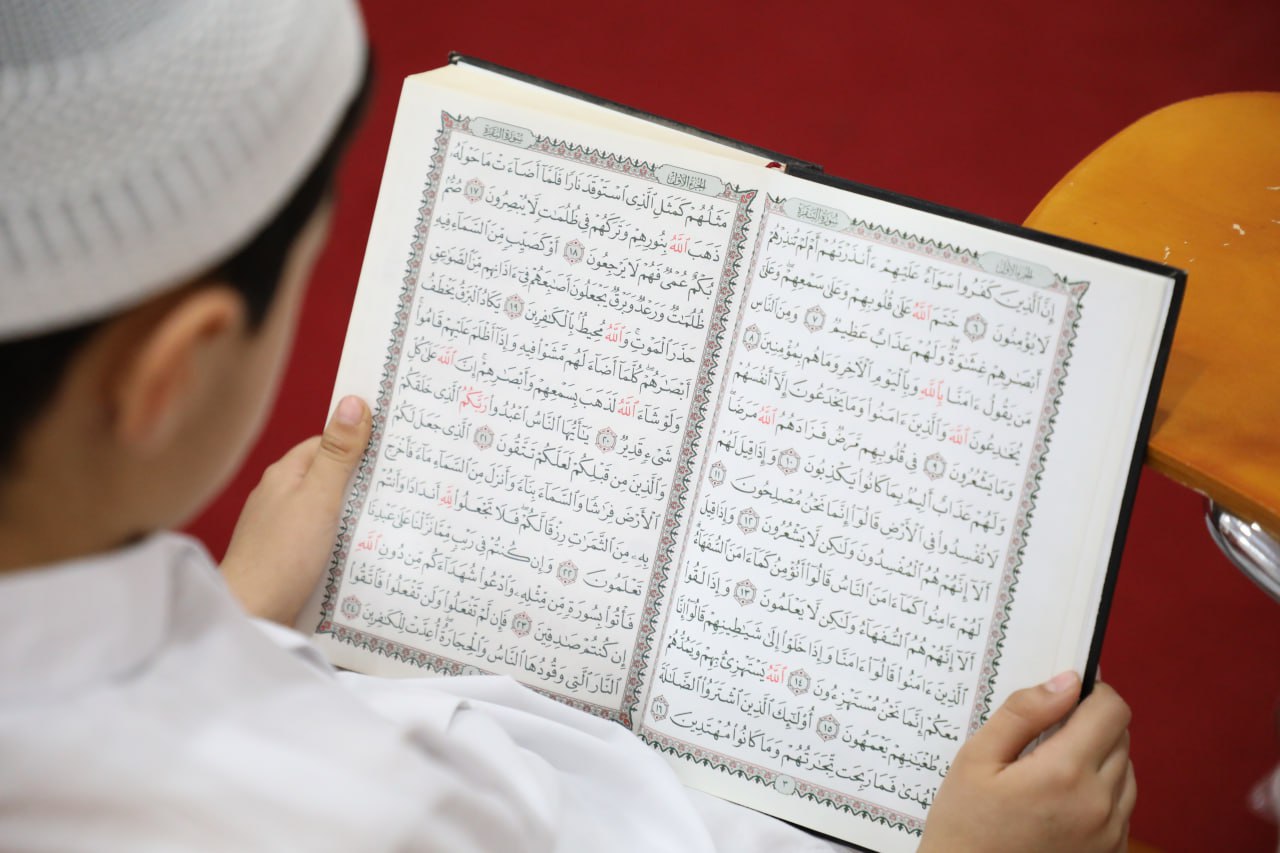 الجزء الأول سورة البقرة
إِنَّ ٱلَّذِينَ كَفَرُوا۟ سَوَآءٌ عَلَيْهِمْ ءَأَنذَرْتَهُمْ أَمْ لَمْ تُنذِرْهُمْ
لَا يُؤْمِنُونَ ٦ خَتَمَ ٱللَّهُ عَلَىٰ قُلُوبِهِمْ وَعَلَىٰ سَمْعِهِمْ ۖ وَعَلَىٰٓ
أَبْصَٰرِهِمْ غِشَٰوَةٌ ۖ وَلَهُمْ عَذَابٌ عَظِيمٌ ٧ وَمِنَ ٱلنَّاسِ
مَن يَقُولُ ءَامَنَّا بِٱللَّهِ وَبِٱلْيَوْمِ ٱلْءَاخِرِ وَمَا هُم بِمُؤْمِنِينَ ٨
يُخَٰدِعُونَ ٱللَّهَ وَٱلَّذِينَ ءَامَنُوا۟ وَمَا يَخْدَعُونَ إِلَّآ أَنفُسَهُمْ
وَمَا يَشْعُرُونَ ٩ فِى قُلُوبِهِم مَّرَضٌ فَزَادَهُمُ ٱللَّهُ مَرَضًا ۖ
وَلَهُمْ عَذَابٌ أَلِيمٌۢ بِمَا كَانُوا۟ يَكْذِبُونَ ١٠ وَإِذَا قِيلَ لَهُمْ
لَا تُفْسِدُوا۟ فِى ٱلْأَرْضِ قَالُوٓا۟ إِنَّمَا نَحْنُ مُصْلِحُونَ ١١
أَلَآ إِنَّهُمْ هُمُ ٱلْمُفْسِدُونَ وَلَٰكِن لَّا يَشْعُرُونَ ١٢ وَإِذَا قِيلَ
لَهُمْ ءَامِنُوا۟ كَمَآ ءَامَنَ ٱلنَّاسُ قَالُوٓا۟ أَنُؤْمِنُ كَمَآ ءَامَنَ ٱلسُّفَهَآءُ ۗ
أَلَآ إِنَّهُمْ هُمُ ٱلسُّفَهَآءُ وَلَٰكِن لَّا يَعْلَمُونَ ١٣ وَإِذَا لَقُوا۟
ٱلَّذِينَ ءَامَنُوا۟ قَالُوٓا۟ ءَامَنَّا وَإِذَا خَلَوْا۟ إِلَىٰ شَيَٰطِينِهِمْ قَالُوٓا۟ إِنَّا
مَعَكُمْ إِنَّمَا نَحْنُ مُسْتَهْزِءُونَ ١٤ ٱللَّهُ يَسْتَهْزِئُ بِهِمْ وَيَمُدُّهُمْ
فِى طُغْيَٰنِهِمْ يَعْمَهُونَ ١٥ أُو۟لَٰٓئِكَ ٱلَّذِينَ ٱشْتَرَوُا۟ ٱلضَّلَٰلَةَ
بِٱلْهُدَىٰ فَمَا رَبِحَت تِّجَٰرَتُهُمْ وَمَا كَانُوا۟ مُهْتَدِينَ ١٦
٣
الجزء الأول سورة البقرة
مَثَلُهُمْ كَمَثَلِ ٱلَّذِى ٱسْتَوْقَدَ نَارًا فَلَمَّآ أَضَآءَتْ مَا حَوْلَهُۥ
ذَهَبَ ٱللَّهُ بِنُورِهِمْ وَتَرَكَهُمْ فِى ظُلُمَٰتٍ لَّا يُبْصِرُونَ ١٧ صُمٌّۢ
بُكْمٌ عُمْىٌ فَهُمْ لَا يَرْجِعُونَ ١٨ أَوْ كَصَيِّبٍ مِّنَ ٱلسَّمَآءِ فِيهِ
ظُلُمَٰتٌ وَرَعْدٌ وَبَرْقٌ يَجْعَلُونَ أَصَٰبِعَهُمْ فِىٓ ءَاذَانِهِم مِّنَ ٱلصَّوَٰعِقِ
حَذَرَ ٱلْمَوْتِ ۚ وَٱللَّهُ مُحِيطٌۢ بِٱلْكَٰفِرِينَ ١٩ يَكَادُ ٱلْبَرْقُ يَخْطَفُ
أَبْصَٰرَهُمْ ۖ كُلَّمَآ أَضَآءَ لَهُم مَّشَوْا۟ فِيهِ وَإِذَآ أَظْلَمَ عَلَيْهِمْ قَامُوا۟ ۚ
وَلَوْ شَآءَ ٱللَّهُ لَذَهَبَ بِسَمْعِهِمْ وَأَبْصَٰرِهِمْ ۚ إِنَّ ٱللَّهَ عَلَىٰ كُلِّ
شَىْءٍ قَدِيرٌ ٢٠ يَٰٓأَيُّهَا ٱلنَّاسُ ٱعْبُدُوا۟ رَبَّكُمُ ٱلَّذِى خَلَقَكُمْ
وَٱلَّذِينَ مِن قَبْلِكُمْ لَعَلَّكُمْ تَتَّقُونَ ٢١ ٱلَّذِى جَعَلَ لَكُمُ
ٱلْأَرْضَ فِرَٰشًا وَٱلسَّمَآءَ بِنَآءً وَأَنزَلَ مِنَ ٱلسَّمَآءِ مَآءً فَأَخْرَجَ
بِهِۦ مِنَ ٱلثَّمَرَٰتِ رِزْقًا لَّكُمْ ۖ فَلَا تَجْعَلُوا۟ لِلَّهِ أَندَادًا وَأَنتُمْ
تَعْلَمُونَ ٢٢ وَإِن كُنتُمْ فِى رَيْبٍ مِّمَّا نَزَّلْنَا عَلَىٰ عَبْدِنَا
فَأْتُوا۟ بِسُورَةٍ مِّن مِّثْلِهِۦ وَٱدْعُوا۟ شُهَدَآءَكُم مِّن دُونِ ٱللَّهِ
إِن كُنتُمْ صَٰدِقِينَ ٢٣ فَإِن لَّمْ تَفْعَلُوا۟ وَلَن تَفْعَلُوا۟ فَٱتَّقُوا۟
ٱلنَّارَ ٱلَّتِى وَقُودُهَا ٱلنَّاسُ وَٱلْحِجَارَةُ ۖ أُعِدَّتْ لِلْكَٰفِرِينَ ٢٤